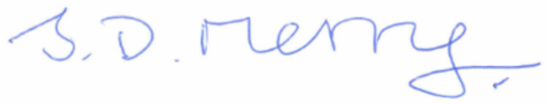 S.D. Merry.